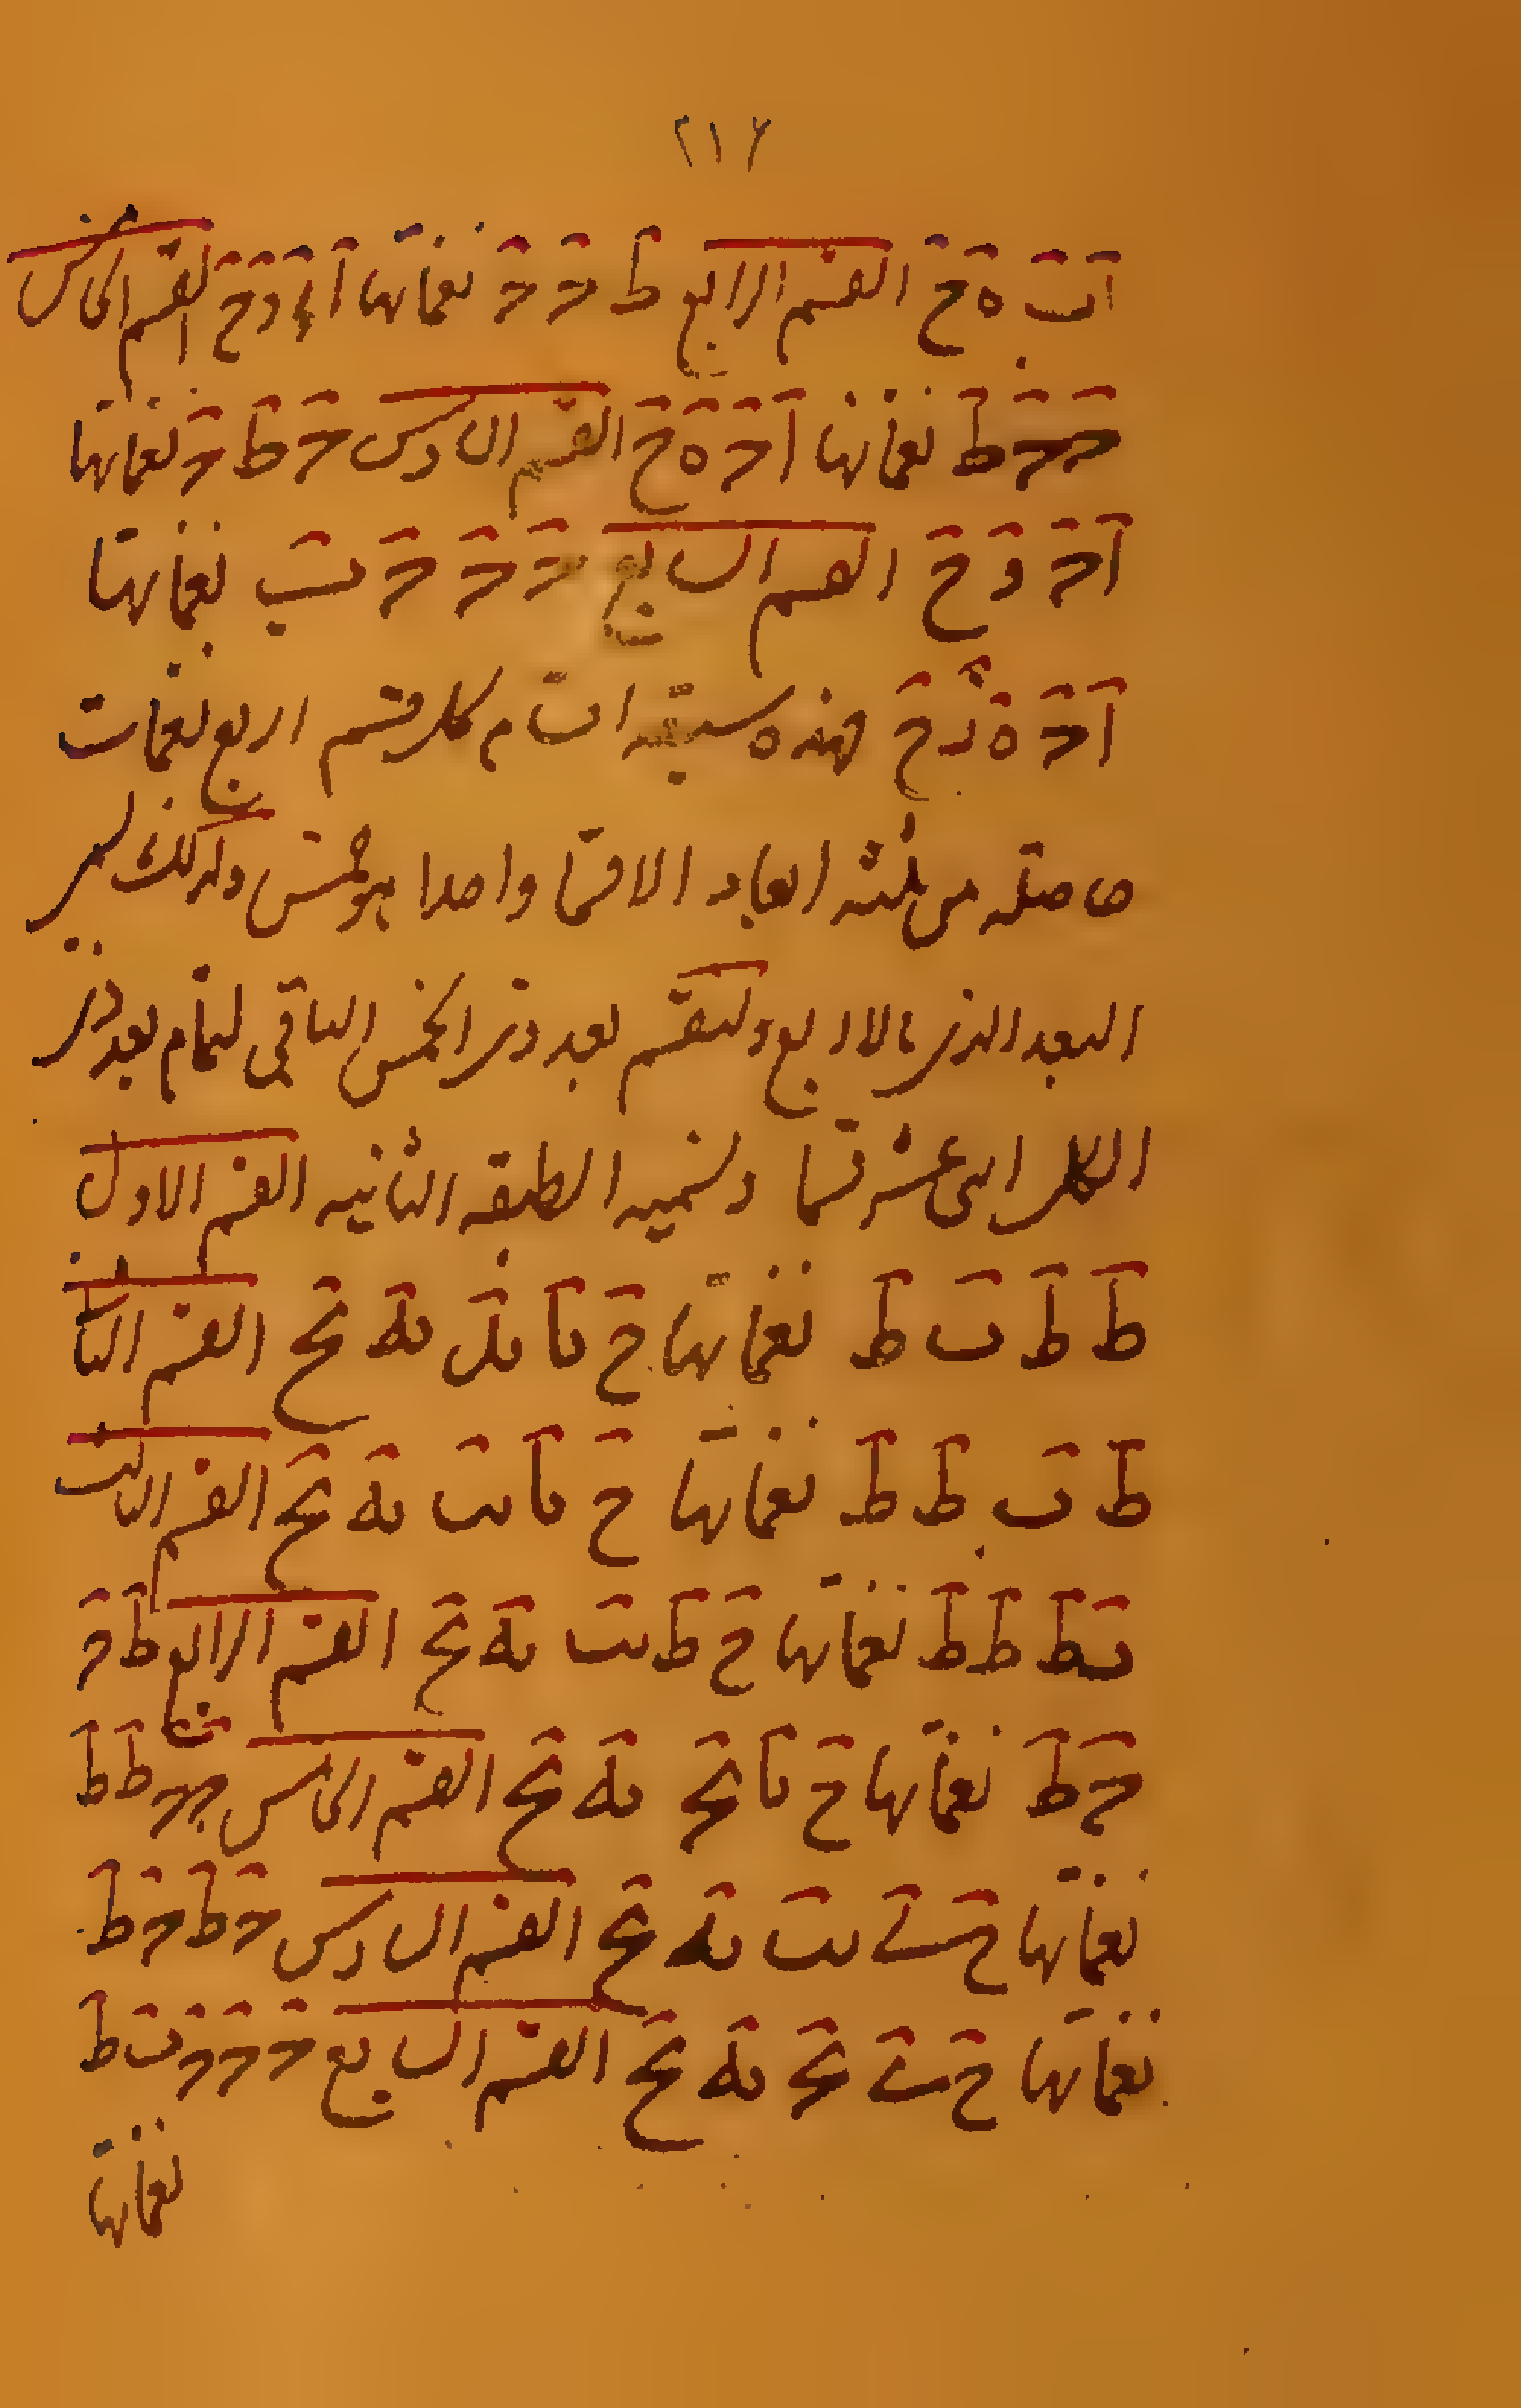 ٢١٦
ا ب ه ح القسم الرابع ط ج ج نغماتها ا د و ح القسم الخامس
ج ج ط نغماتها ا ج ه ح القسم السادس ج ط ج نغماتها
ا ج و ح القسم السابع ج ج ج ب نغماتها
ا ج ه ز ح فهذه سبعة اقسام كل قسم اربع نغمات
حاصلة من ثلثة ابعاد الا قسما واحدا هو خمس وكذلك نسمى
البعد الذى بالاربع ولنقسم بعد ذى الخمس الباقى لتمام بعد ذى
الكل اثنى عشر قسما ونسميه الطبقة الثانية القسم الاول
ط ط ب ط نغماتها ح يا يد يه يح القسم الثانى
ط ب ط ط نغماتها ح يا يب يه يح القسم الثالث
ب ط ط ط نغماتها ح ط يب يه يح القسم الرابع ط ج
ج ط نغماتها ح يا يج يه يح القسم الخامس ج ج ط ط
نغماتها ح ى يب يه يح القسم السادس ج ط ج ط
نغماتها ح ى يج يه يح القسم السابع ج ج ج ب ط
نغماتها